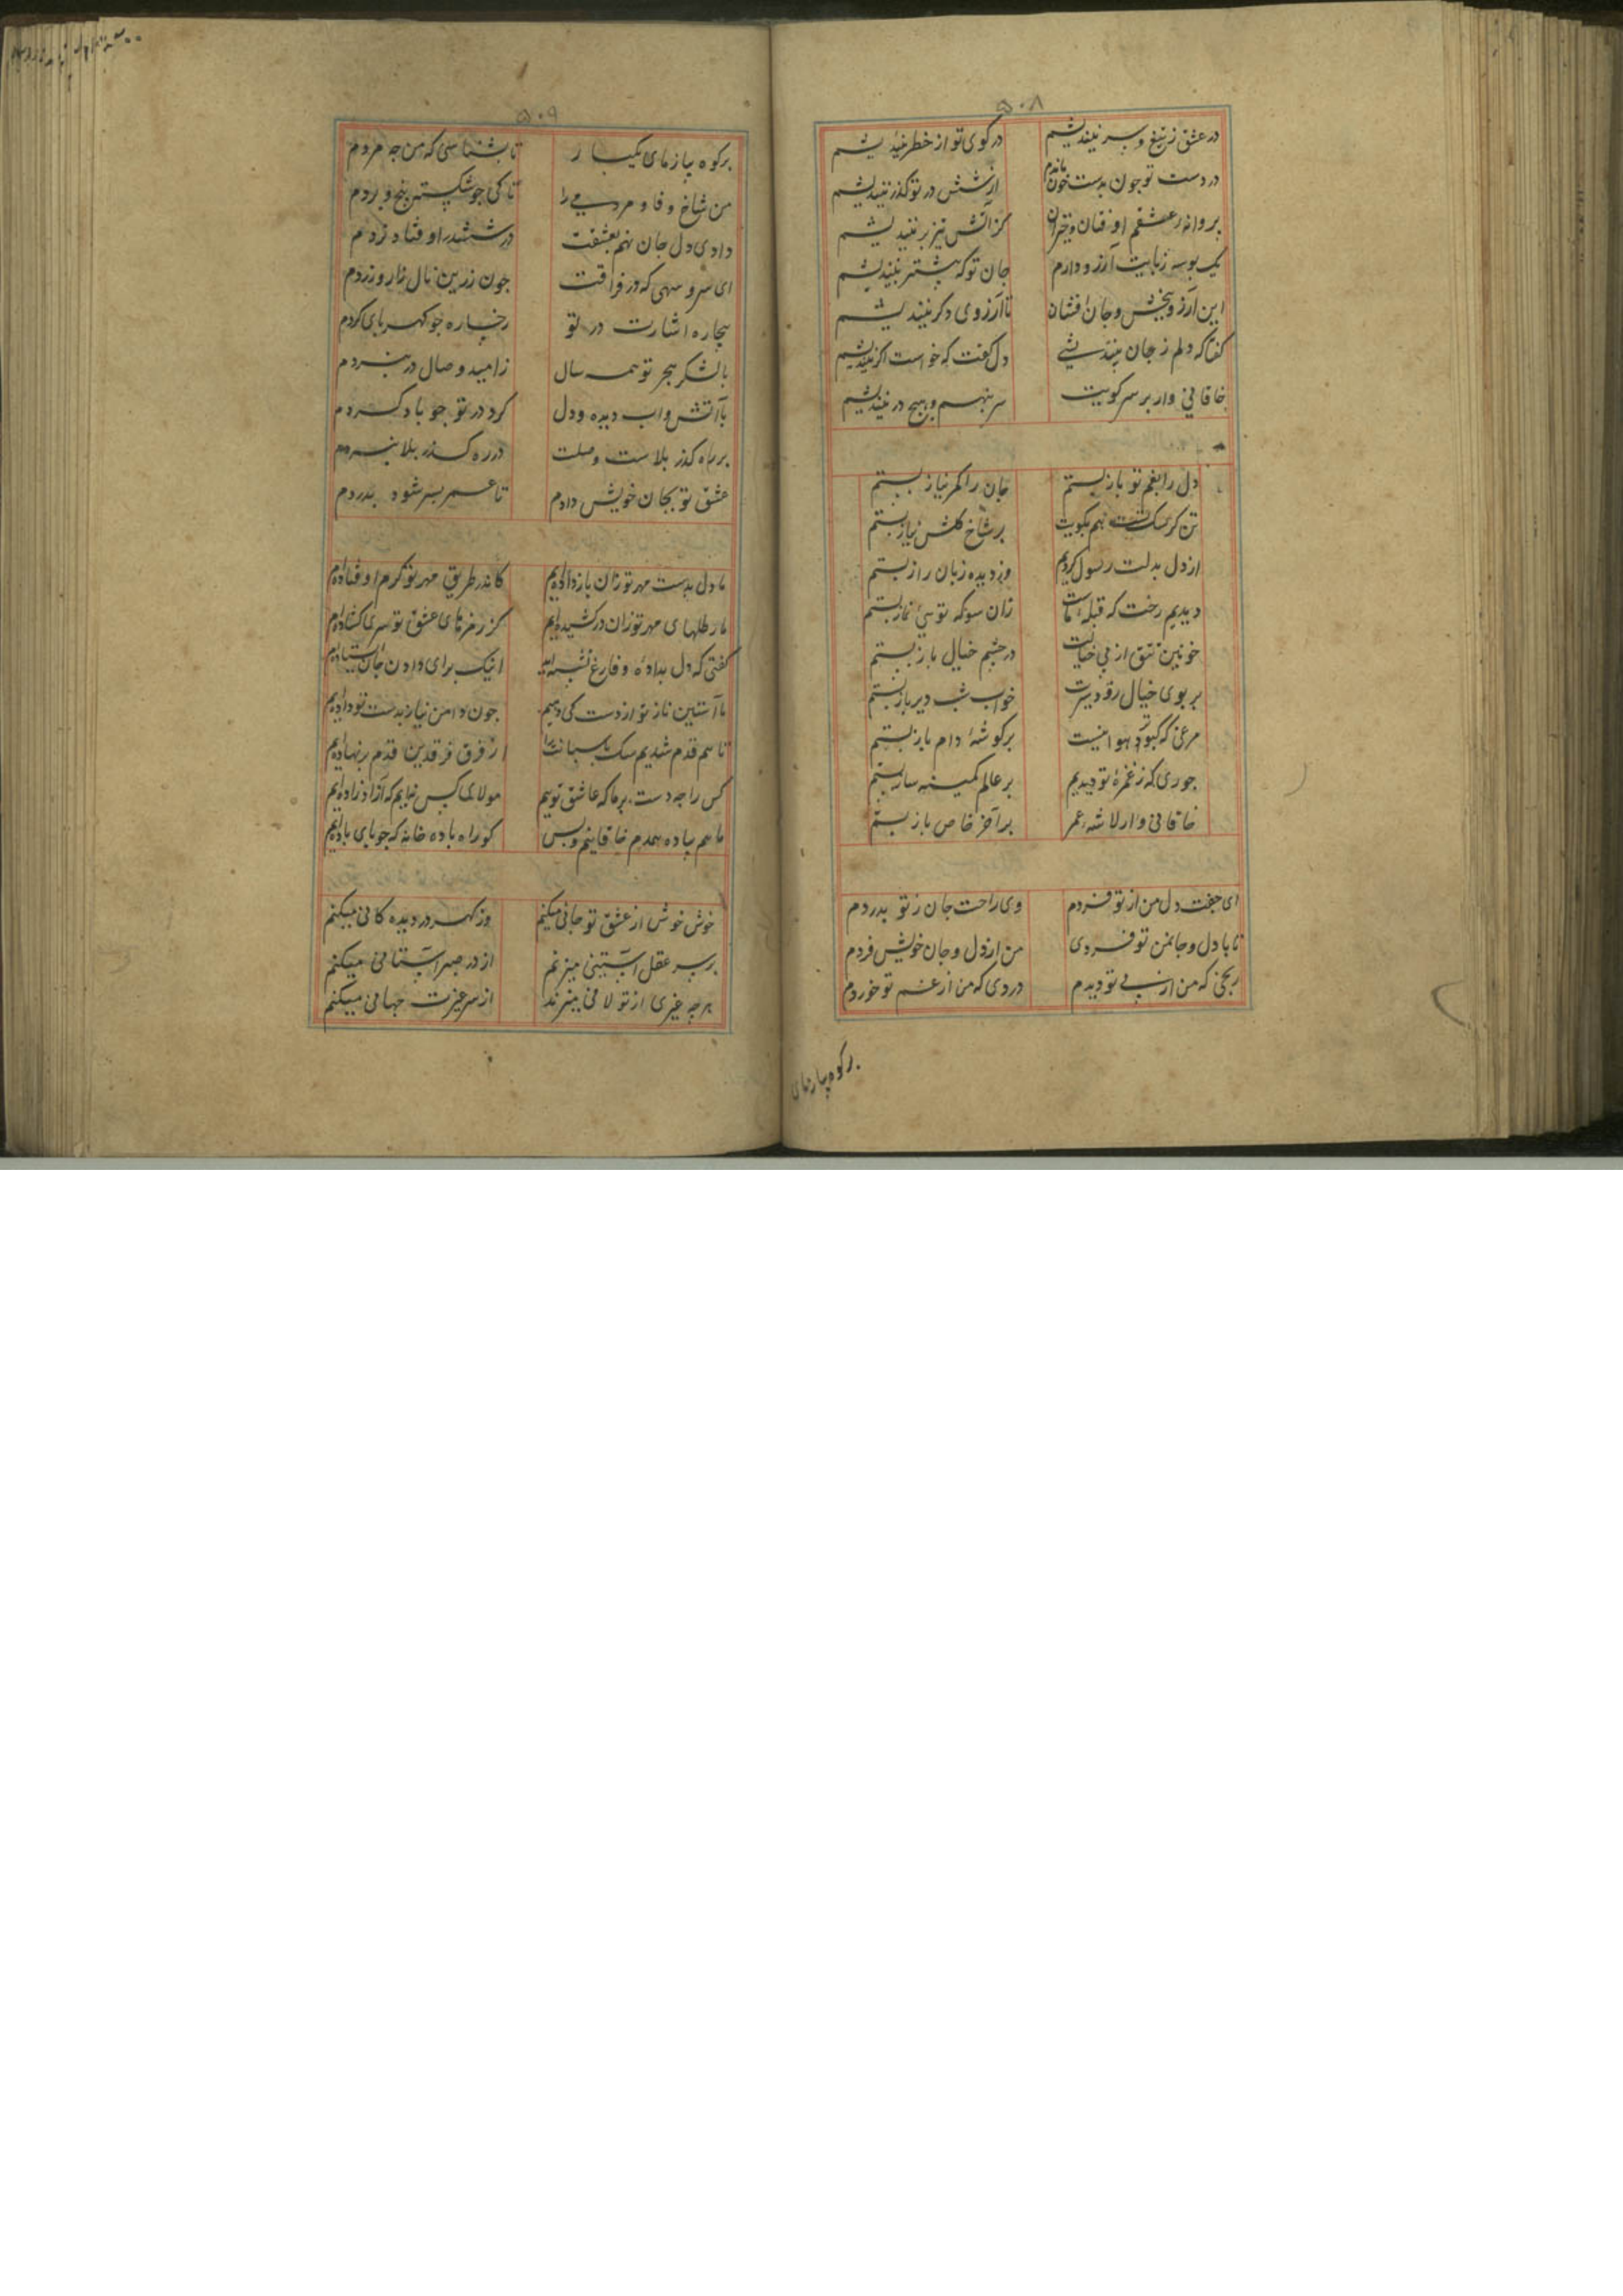 ۵۰۸
در عشق ز تیغ و سر نیندیشم در کوی تو از خطر نیندیشم
در دست تو چون بدست خون ماندم از شش در تو گذر نیندیشم
پروانهٔ عشقم اوفتان و خیزان کز آتش تیز بر نیندیشم
یک بوسه ز پایت آرزو دارم جان تو که بیشتر نیندیشم
این آرزو ببخش و جان افشان تا آرزوی دگر نیندیشم
گفتا که دلم ز جان نیندیشی دل گفت که خواست اگر نیندیشم
خاقانی وار بر سر کویت سر بنهم و هیچ در نیندیشم
دل را بغم تو باز بستم جان را کمر نیاز بستم
تن کو سگ تست هم بکویت بر شاخ گلش نیاز بستم
از دل بدلت رسول کردیم وز دیده زبان راز بستم
دیدیم رخت که قبلهٔ ماست زان سو که تویی نماز بستم
خونین تتق از پی خیالت در چشم خیال باز بستم
بر بوی خیال زود سیرت خواب شب دیرباز بستم
مرغی که کبوتر هوا نیست بر گوشهٔ دام باز بستم
جوری که ز غمزهٔ تو دیدیم بر عالم کمینه ساز بستم
خاقانی وار لاشهٔ عمر بر آخر خاص باز بستم
ای جفت دل من از تو فردم وی راحت جان ز تو بدردم
تا با دل و جان من تو فردی من از دل و جان خویش فردم
رنجی که من از پی تو دیدم دردی که من از غم تو خوردم
بر کوه بیازمای
۵۰۹
بر کوه بیازمای یکبار تا بشناسی که من چه مردم
من شاخ وفا و مردمی را تا کی چو شکستن بیخ و بردم
دادی دل جان نهم بعشقت در ششدر اوفتاد نردم
ای سرو سهی که در فراقت چون زرین نال زار و زردم
بیجاده اشارت در تو رخساره چو کهربای کردم
با لشکر هجر تو همه سال ز امید وصال در نبردم
با آتش و آب دیده و دل گرد در تو چو باد گردم
بر راه گذر بلاست وصلت در ره گذر بلا نبردم
عشق تو بجان خویش دادم تا عمر بسر شود بدردم
ما دل بدست مهر تو زان باز داده‌ایم کاندر طریق مهر تو گرم اوفتاده‌ایم
ما رطلهای مهر تو زان در کشیده‌ایم کز زخمهای عشق تو سری گشاده‌ایم
گفتی که دل بداده و فارغ نشسته‌اید اینک برای دادن جان ایستاده‌ایم
ما آستین ناز تو از دست کی دهیم چون دامن نیاز بدست تو داده‌ایم
تا هم قدم شدیم سگ پاسبانت را از فرق فرقدین قدم بر نهاده‌ایم
کس را چه دست بر ما که عاشق توییم مولای کس نیایم که آزاد زاده‌ایم
ما هم بباده همدم خاقانییم و بس کو راه باده خانه که جویای باده‌ایم
خوش خوش از عشق تو جانی میکنم وز گهر در دیده کانی میکنم
بر سر عقل آستینی میزنم از در صبر آستانی میکنم
هر چه غیری از تو لافی میزند از سر غیرت جهانی میکنم